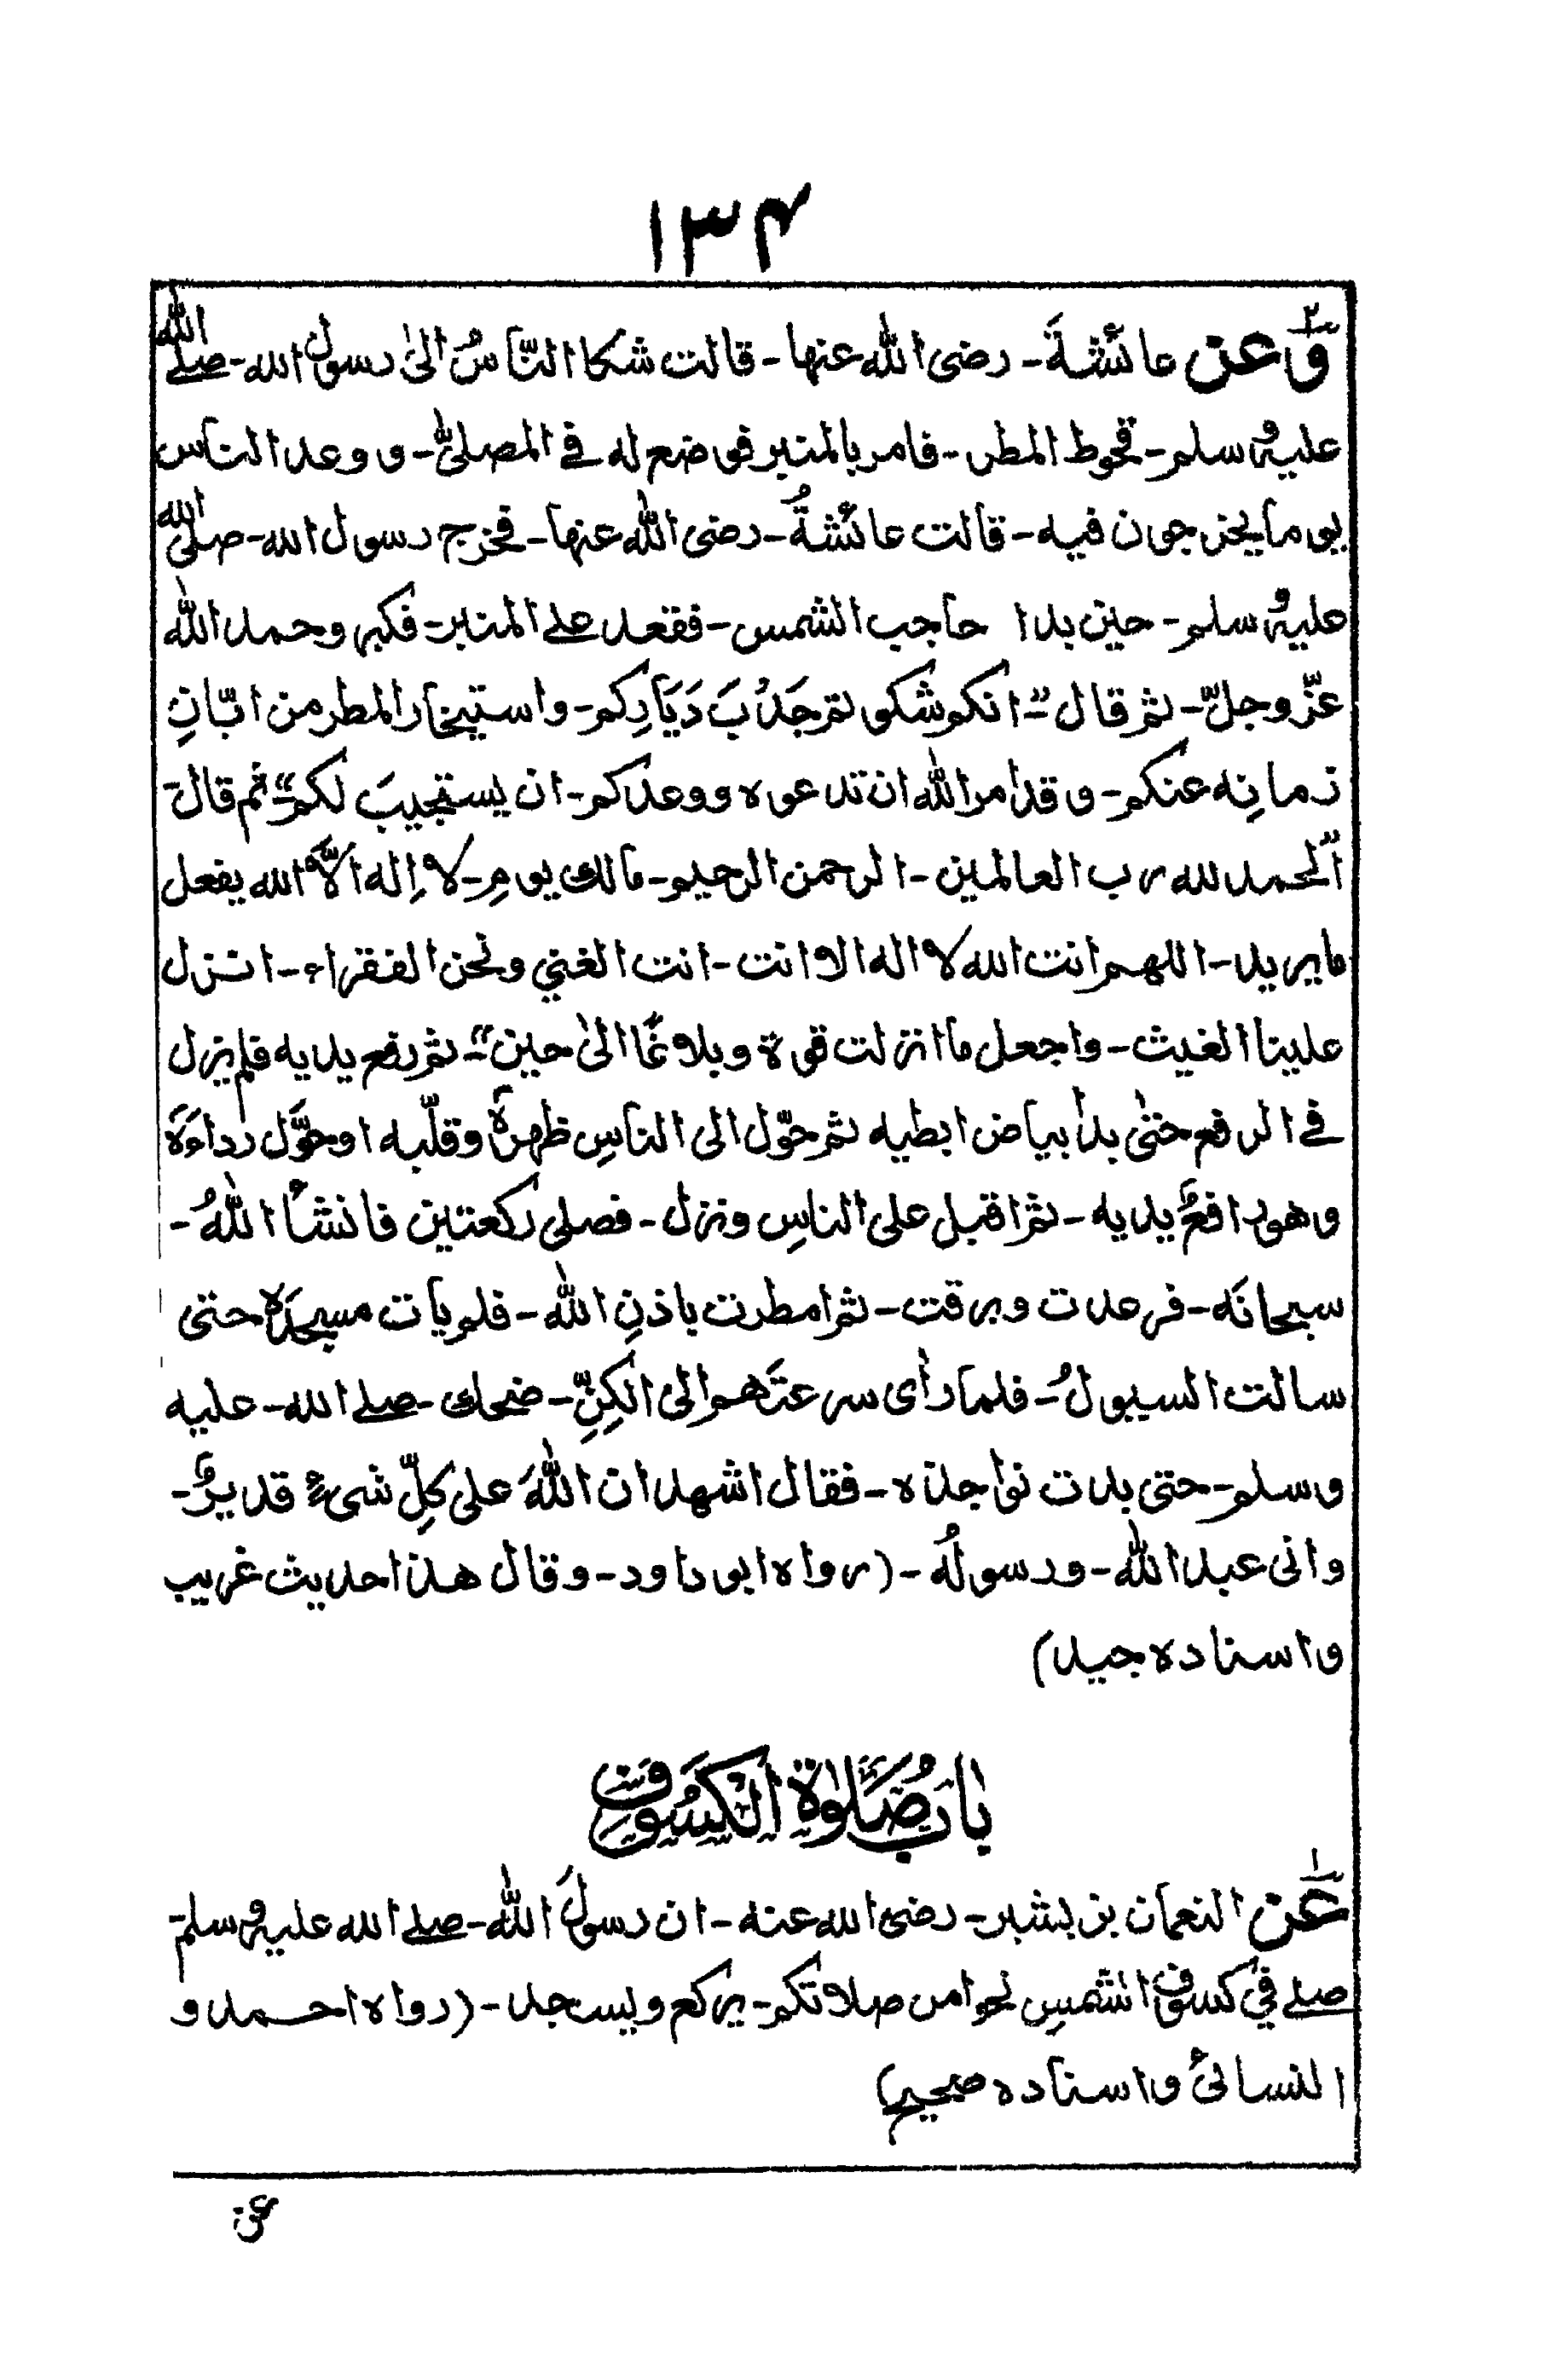 ١٣۴
٢ وَعن عائشةَ - رضى الله عنها - قالت شكا النّاسُ الىٰ رسول الله - صلے الله
عليه وسلم - قحوط المطر - فامر بالمنبر فوضع له فے المصلىّٰ - ووعد الناس
يوما يخرجون فيه - قالت عائشةُ - رضى الله عنها - فخرج رسول الله - صلى الله
عليه وسلم - حين بدا حاجب الشمس - فقعد علے المنبر - فكبر وحمد الله
عزّ وجلّ - ثم قال "- انكم شكوتم جَدْبَ دَيَارِكم - واستيخار المطر من ابّانِ
زمانِه عنكم - وقد امر الله ان تدعوه ووعدكم - ان يستجيبَ لكم "- ثم قال -
"اَلحمد لله رب العالمين - الرحمن الرحيم - مالك يومِ - لا اِله الاّ الله يفعل
ما يريد - اللهم انت الله لا اله الا انت - انت الغني ونحن الفقراء - انزل
علينا الغيث - واجعل ما انزلت قوة وبلاغًا الىٰ حين "- ثم رفع يديه فلم يزل
فے الرفع حتىٰ بدا بياض ابطيه ثم حوّل الى الناسِ ظهرهٗ وقلّبه او حوَّل رداءَهٗ
وهو رافعٌ يديه - ثم اقبل على الناسِ ونزل - فصلى ركعتين فانشأ اللهُ -
سبحانَه - فرعدت وبرقت - ثم امطرت باذنِ الله - فلم يأت مسجدَه حتى
سالت السيولُ - فلما رأى سرعتَهم الى الكِنِّ - ضحك - صلے الله - عليه
وسلم - حتى بدت نواجذه - فقال اشهد ان اللهَ على كلِّ شىءٍ قديرٌ -
وانى عبد الله - ورسولُه - (رواه ابو داود - وقال هذا حديث غريب
واسناده جيد)
بَابُ صَلٰوةِ الْكُسُوْفِ
١ عَن النعمان بن بشير - رضى الله عنه - ان رسولَ الله - صلے الله عليه وسلم -
صلے في كسوف الشمسِ نحوا من صلاتكم - يركع ويسجد - (رواه احمد و
النسائىُ واسناده صحيح)
عن